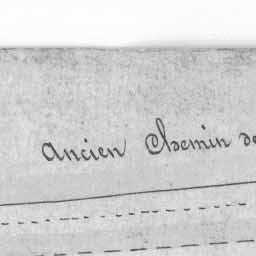 Ancien Chemin de